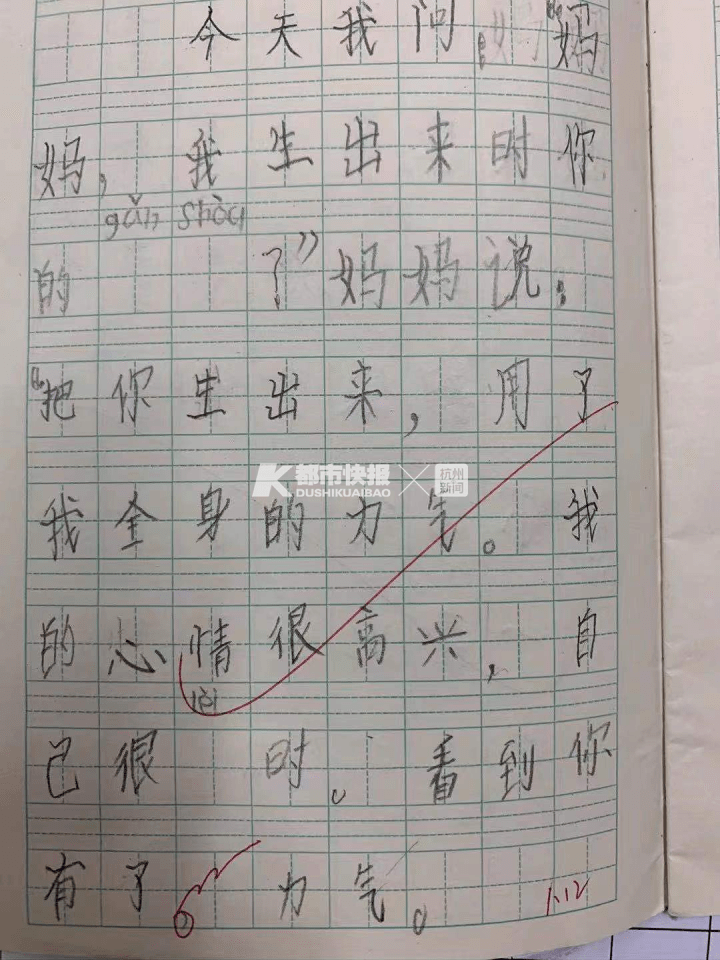 今天我问:"妈
妈,我生出来时你
gǎn shòu
的 了"妈妈说:
"把你生出来,用了
我全身的力气。我
的心情很高兴,自
lèi
己很 时。看到你
有了 力气。
1.12
都市快报 DUSHIKUAIBAO × 杭州新闻